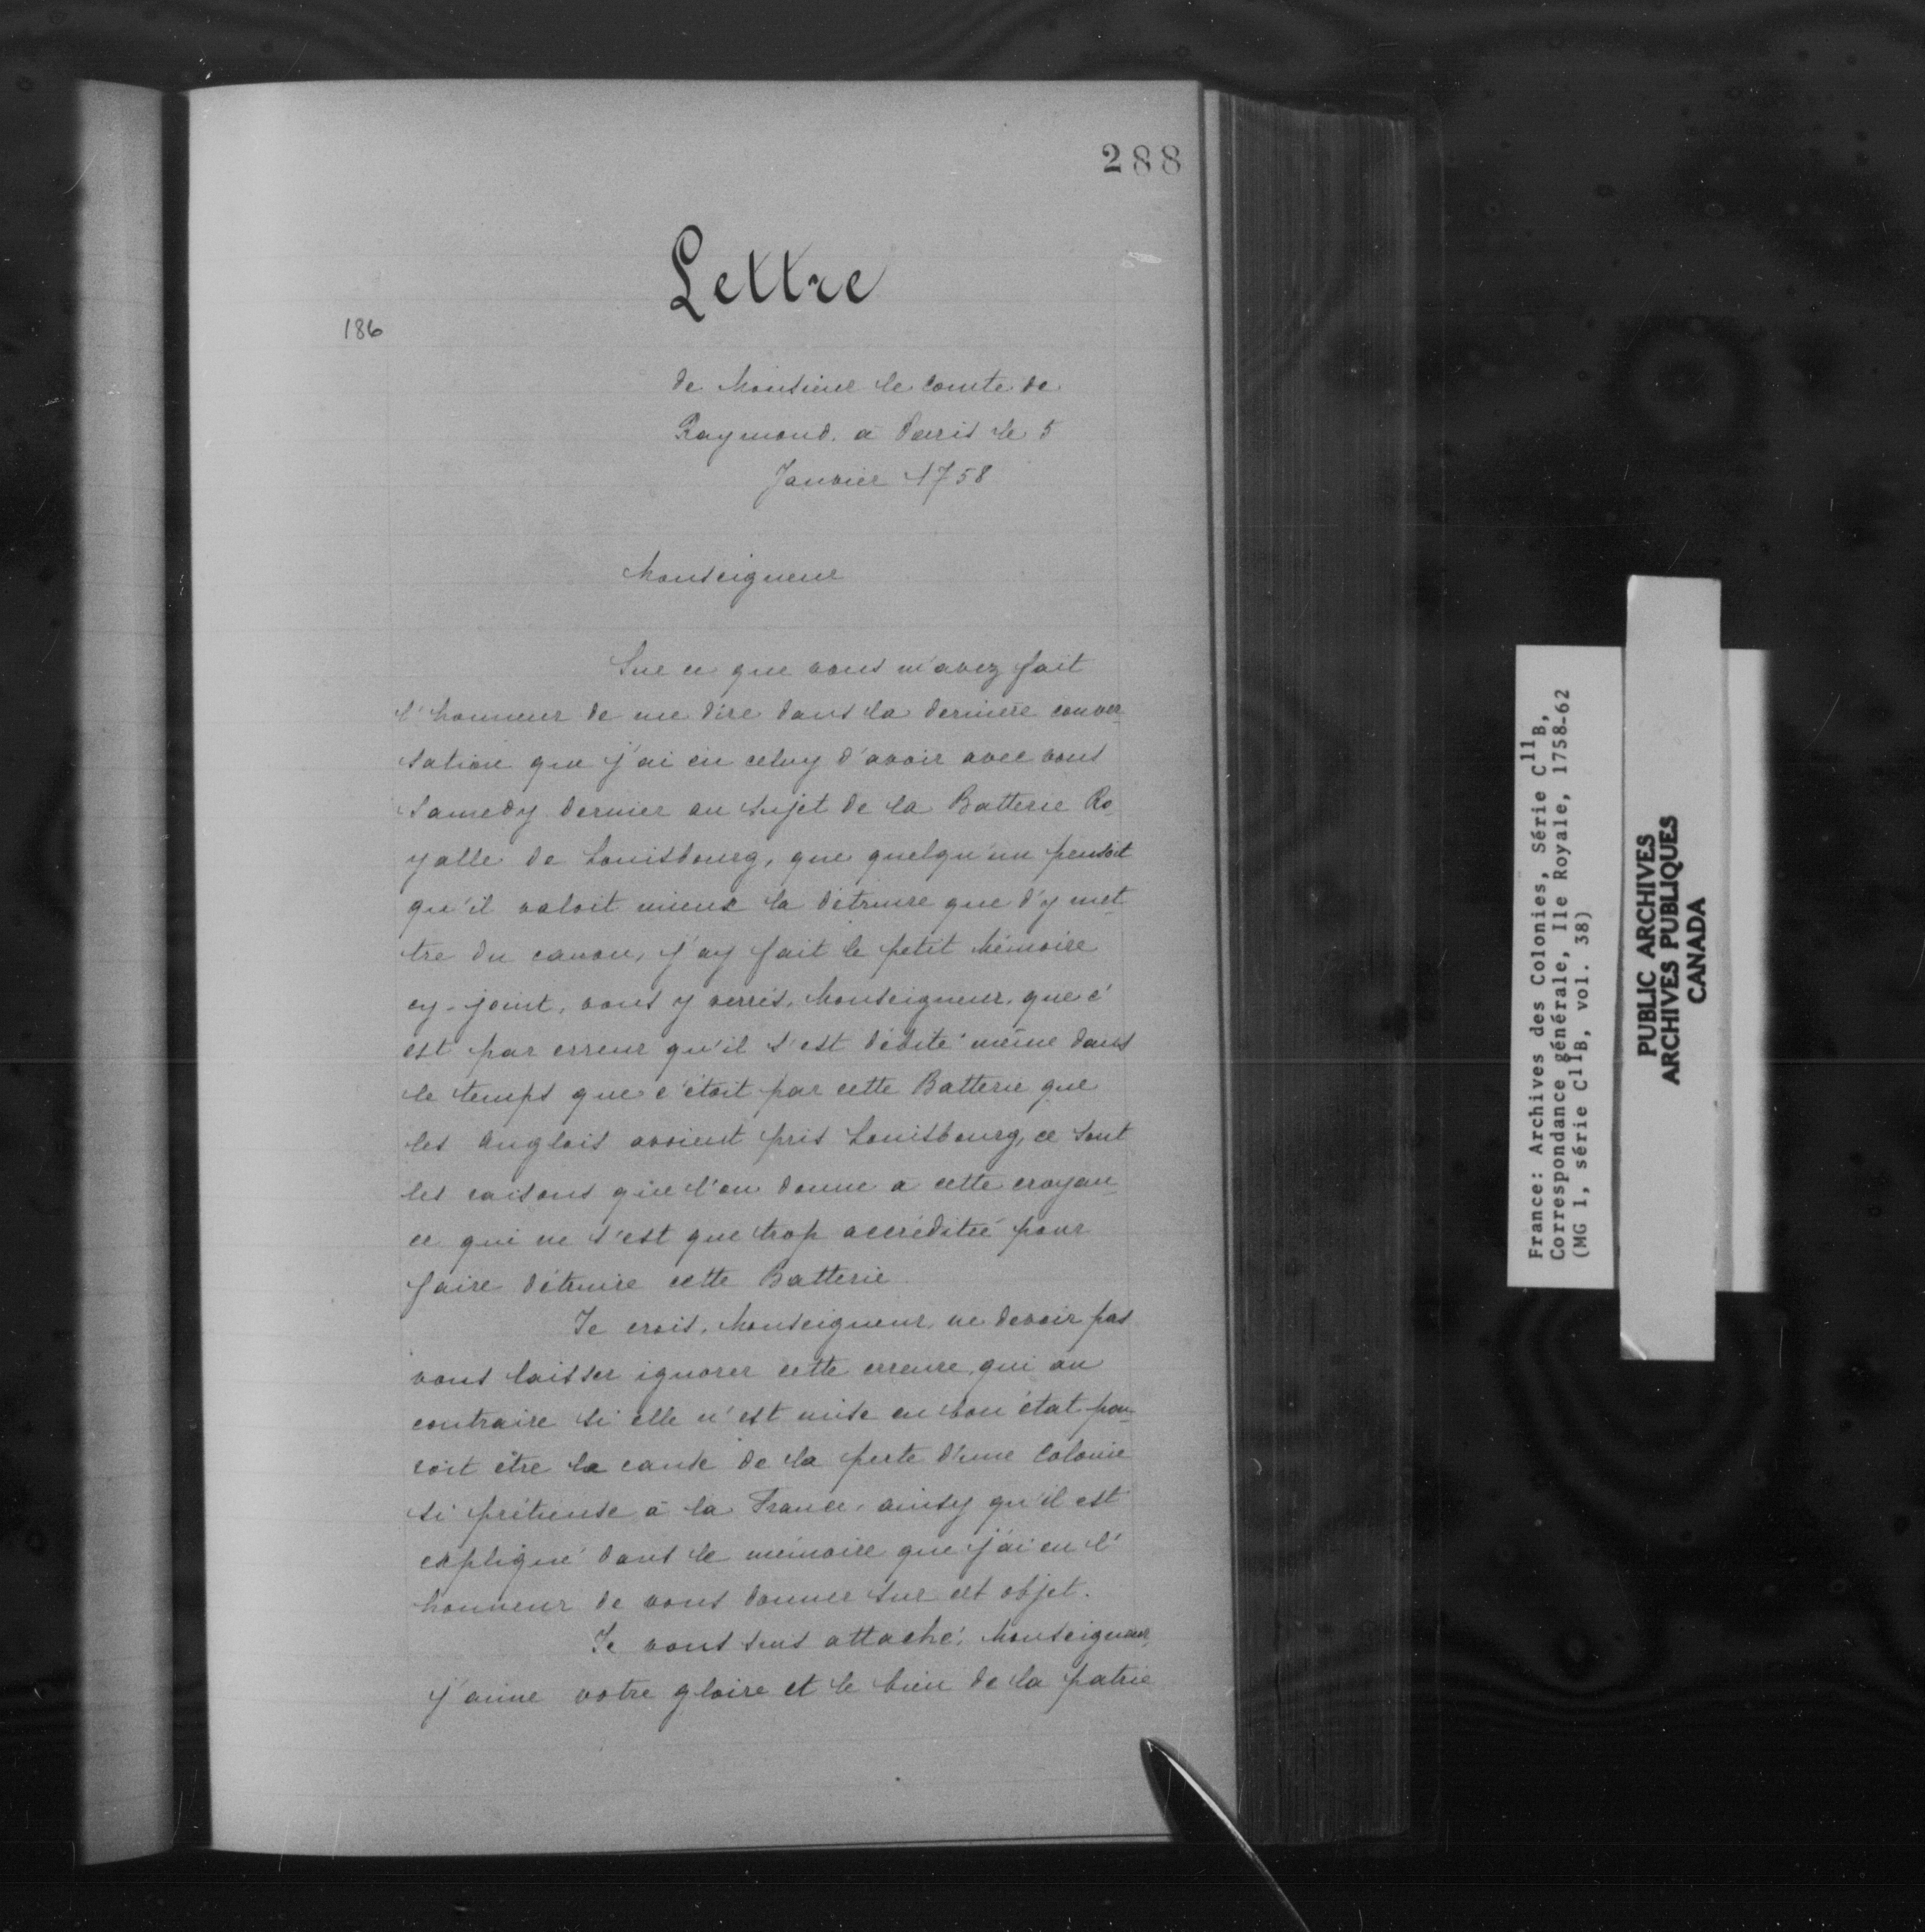 288
Lettre
186
de Monsieur le Comte de
Raymond. a Paris le 5
Janvier 1758
Monseigneur
Sur ce que vous m'avez fait
l'honneur de me dire dans la dernière conver
sation que j'ai eu celuy d'avoir avec vous
Samedy dernier au sujet de la Batterie Ro
yalle de Louisbourg, que quelqu'un pensoit
qu'il valoit mieux la détruire que d'y met
tre du canon, j'ay fait le petit Mémoire
cy-joint, vous y verrés, Monseigneur, que c'
est par erreur qu'il s'est débité même dans
le temps que c'étoit par cette Batterie que
les Anglois avoient pris Louisbourg, ce sont
les raisons que l'on donne a cette croyan
ce qui ne s'est que trop accréditée pour
faire détruire cette Batterie
Je crois, Monseigneur, ne devoir pas
vous laisser ignorer cette erreure, qui au
contraire si elle n'est mise en bon état pou
roit être la cause de la perte d'une Colonie
si prétieuse à la France, ainsy qu'il est
expliqué dans le mémoire que j'ai eu l'
honneur de vous donner sur cet objet.
Je vous suis attaché, Monseigneur,
j'aime votre gloire et le bien de la patrie
France: Archives des Colonies, Série C11B,
Correspondance générale, Ile Royale, 1758-62
(MG 1, série C11B, vol. 38)
PUBLIC ARCHIVES
ARCHIVES PUBLIQUES
CANADA